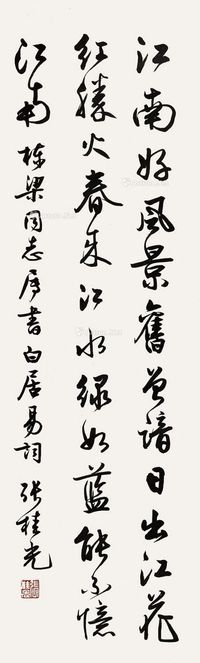 江南好風景舊曾諳日出江花
紅勝火春來江水綠如藍能不憶
江南 栋梁同志属書白居易詞 張桂光